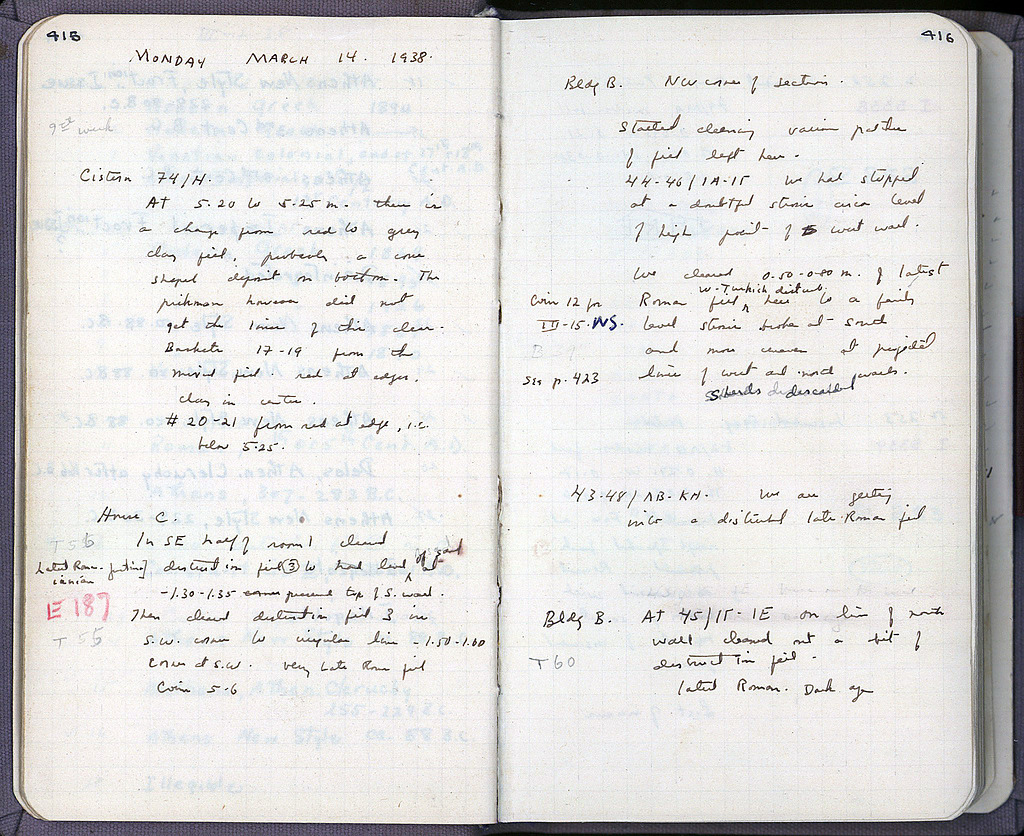 415
MONDAY MARCH 14. 1938.
9th week
Cistern 74/H.
At 5.20 to 5.25 m. there is
a change from red to grey
clay fill, probably a cone
shaped deposit on bottom. The
pickman however did not
get the line of this clear.
Baskets 17-19 from the
mixed fill. red at edges.
clay in center.
# 20-21 from red at edge, i.e.
below 5.25.
House C.
T 55
In SE half of room 1 cleared
Latest Roman
destruction fill ③ to hard level of
-1.30-1.35 present top of S. wall.
E 187
Then cleared destruction fill 3 in
T 55
S.W. corner to irregular line -1.50-1.60
Coins at S.W. very Late Roman fill
Coin 5-6
416
Bldg B. NW corner of section.
Started cleaning various patches
of fill left here.
44-46/ΙΑ-ΙΕ We had stopped
at a doubtful stone area level
of high point of west wall.
We cleared 0.50-0.80 m. of latest
w. Turkish disturb.
Coin 12 fr
Roman fill here to a fairly
III-15. NS.
level stone broke at south
B 39
and more uneven at projected
See p. 423
line of west and north walls.
Sherds discarded
43-48/ΛΒ-ΚΗ. We are getting
into a disturbed late Roman fill
Bldg B. At 45/ΙΕ-ΙΕ on line of north
wall cleaned out a bit of
T 60
destruction fill.
latest Roman. Dark age